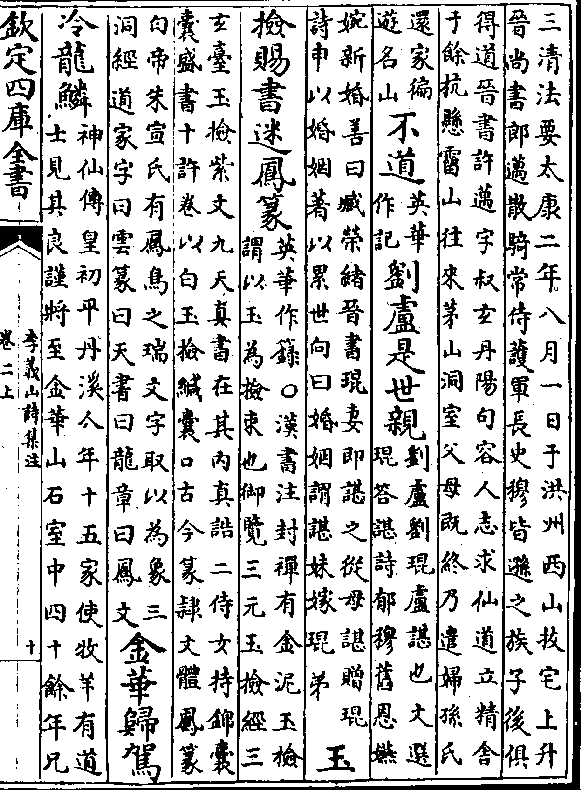 三清法要太康二年八月一日于洪州西山抜宅上升
晉尚書郎邁散騎常侍護軍長史穆皆遜之族子後俱
得道晉書許邁字叔𤣥丹陽句容人志求仙道立精舎
于餘杭懸霤山往來茅山洞室父母既終乃遣婦孫氏
還家徧
遊名山
不道
英華
作記
劉盧是世親
劉盧劉琨盧諶也文選
琨答諶詩郁穆舊恩嬿
婉新婚善曰臧榮緒晉書琨妻即諶之從母諶贈琨
詩申以婚姻著以累世向曰婚姻謂諶妹嫁琨弟
玉
檢賜書迷鳳篆
英華作籙〇漢書注封禪有金泥玉檢
謂以玉為檢束也御覽三元玉檢經三
𤣥臺玉檢紫文九天真書在其内真誥二侍女持錦囊
囊盛書十許卷以白玉檢緘囊口古今篆𨽻文體鳳篆
白帝朱宣氏有鳳鳥之瑞文字取以為象三
洞經道家字曰雲篆曰天書曰龍章曰鳳文
金華歸駕
冷龍鱗
神仙傳皇初平丹溪人年十五家使牧羊有道
士見其良謹將至金華山石室中四十餘年兄
欽定四庫全書
李義山詩集注
卷二上
十